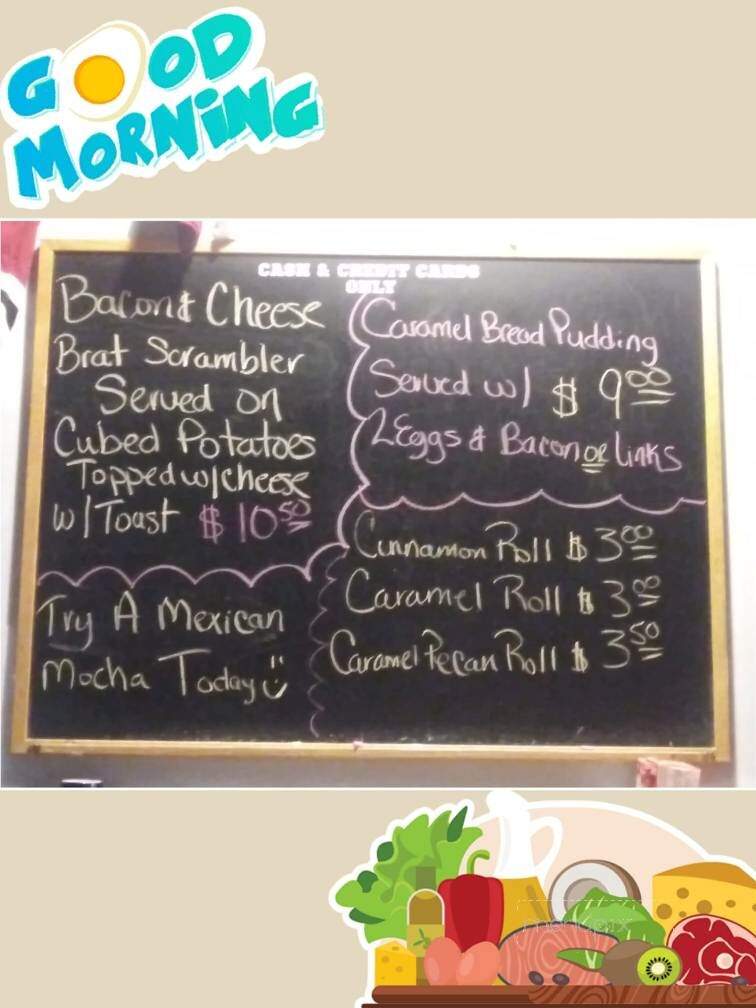 GOOD
MORNiNG
CASH & CREDIT CARDS
ONLY
Bacon & Cheese
Brat Scrambler
Served on
Cubed Potatoes
Topped w/cheese
w/Toast $10.50
Try A Mexican
Mocha Today
Caramel Bread Pudding
Served w/ $9.00
2 Eggs & Bacon or Links
Cinnamon Roll $3.00
Caramel Roll $3.00
Caramel Pecan Roll $3.50